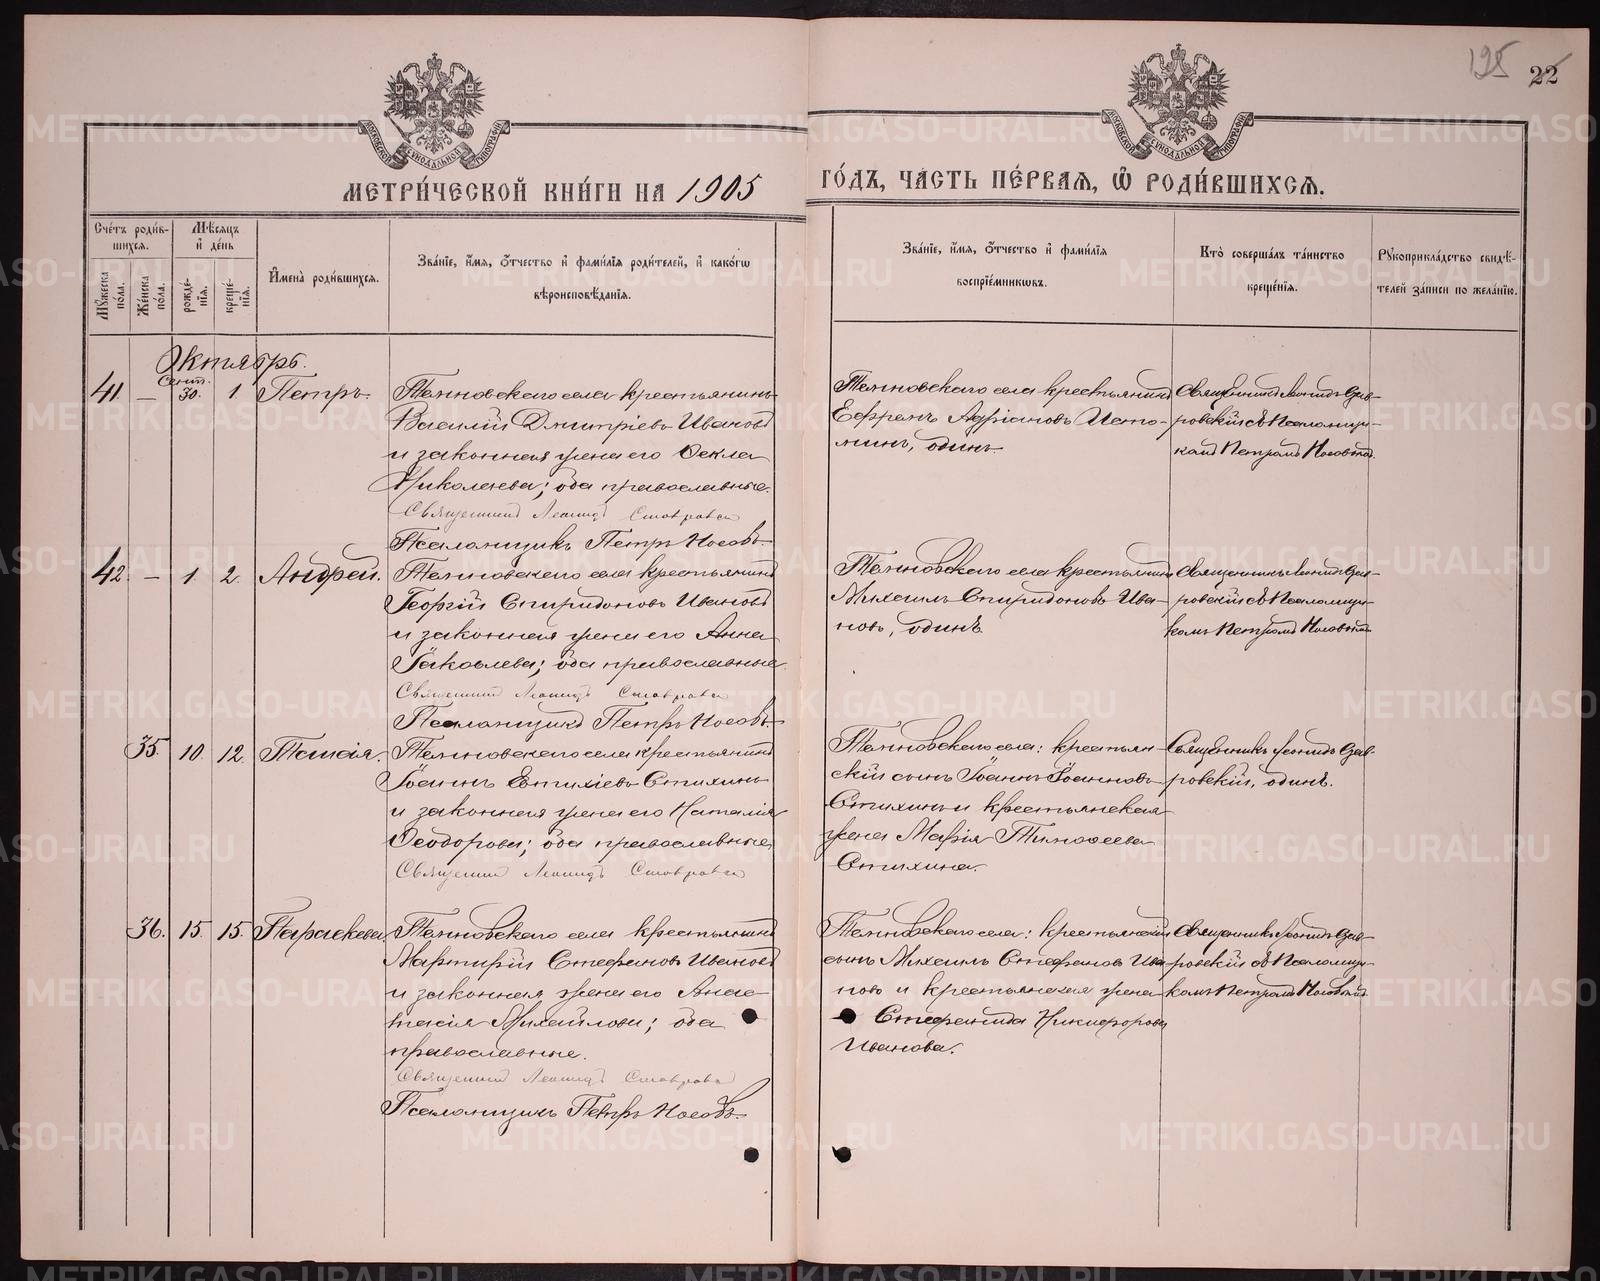 195
22
МОСКОВСКОЙ СѴНОДАЛЬНОЙ ТИПОГРАФІИ
МОСКОВСКОЙ СѴНОДАЛЬНОЙ ТИПОГРАФІИ
МЕТРИ́ЧЕСКОЙ КНИ́ГИ НА 1905 ГО́ДЪ, ЧА́СТЬ ПЕ́РВАЯ, Ѡ҆ РОДИ́ВШИХСЯ.
Сче́тъ роди́в-
шихся.
Мѣ́сяцъ
и҆ де́нь
Мꙋ́жеска по́ла.
Же́нска по́ла.
рожде́-
нїя.
креще́-
нїя.
И҆мена̀ роди́вшихся.
Зва́нїе, и҆́мя, ѻ҆́тчество и҆ фами́лїя роди́телей, и҆ како́гѡ
вѣроисповѣ́данїя.
Зва́нїе, и҆́мя, ѻ҆́тчество и҆ фами́лїя
воспрїе́мникѡвъ.
Кто̀ соверша́лъ та́инство
креще́нїя.
Рꙋкоприкла́дство свидѣ́-
телей за́писи по жела́нїю.
Октябрь.
41 — Сент. 30. 1. Петръ.
Темновскаго села крестьянинъ
Василій Дмитріевъ Ивановъ
и законная жена его Ѳекла
Николаева; оба православные.
Священникъ Леонидъ Ставровскій
Псаломщикъ Петръ Носовъ.
Темновскаго села крестьянинъ
Ефремъ Адріановъ Исто-
минъ, одинъ.
Священникъ Леонидъ Став-
ровскій съ Псаломщи-
комъ Петромъ Носовымъ.
42. — 1. 2. Андрей.
Темновскаго села крестьянинъ
Георгій Спиридоновъ Ивановъ
и законная жена его Анна
Іаковлева; оба православные
Священникъ Леонидъ Ставровскій
Псаломщикъ Петръ Носовъ.
Темновскаго села крестьянинъ
Михаилъ Спиридоновъ Ива-
новъ, одинъ
Священникъ Леонидъ Став-
ровскій съ Псаломщи-
комъ Петромъ Носовымъ
35. 10. 12. Таисія.
Темновскаго села крестьянинъ
Іоаннъ Евтихіевъ Стихинъ
и законная жена его Наталія
Ѳеодорова; оба православные
Священникъ Леонидъ Ставровскій
Темновскаго села: крестьян-
скій сынъ Іоаннъ Іоанновъ
Стихинъ и крестьянская
жена Марія Тимоѳеева
Стихина.
Священникъ Леонидъ Став-
ровскій, одинъ.
36. 15. 15. Параскева.
Темновскаго села крестьянинъ
Мартирій Стефановъ Ивановъ
и законная жена его Анас-
тасія Михайлова; оба
православные.
Священникъ Леонидъ Ставровскій
Псаломщикъ Петръ Носовъ.
Темновскаго села: крестьянскій
сынъ Михаилъ Стефановъ Ива-
новъ и крестьянская жена
Стефанида Никифорова
Иванова.
Священникъ Леонидъ Став-
ровскій съ Псаломщи-
комъ Петромъ Носовымъ
METRIKI.GASO-URAL.RU